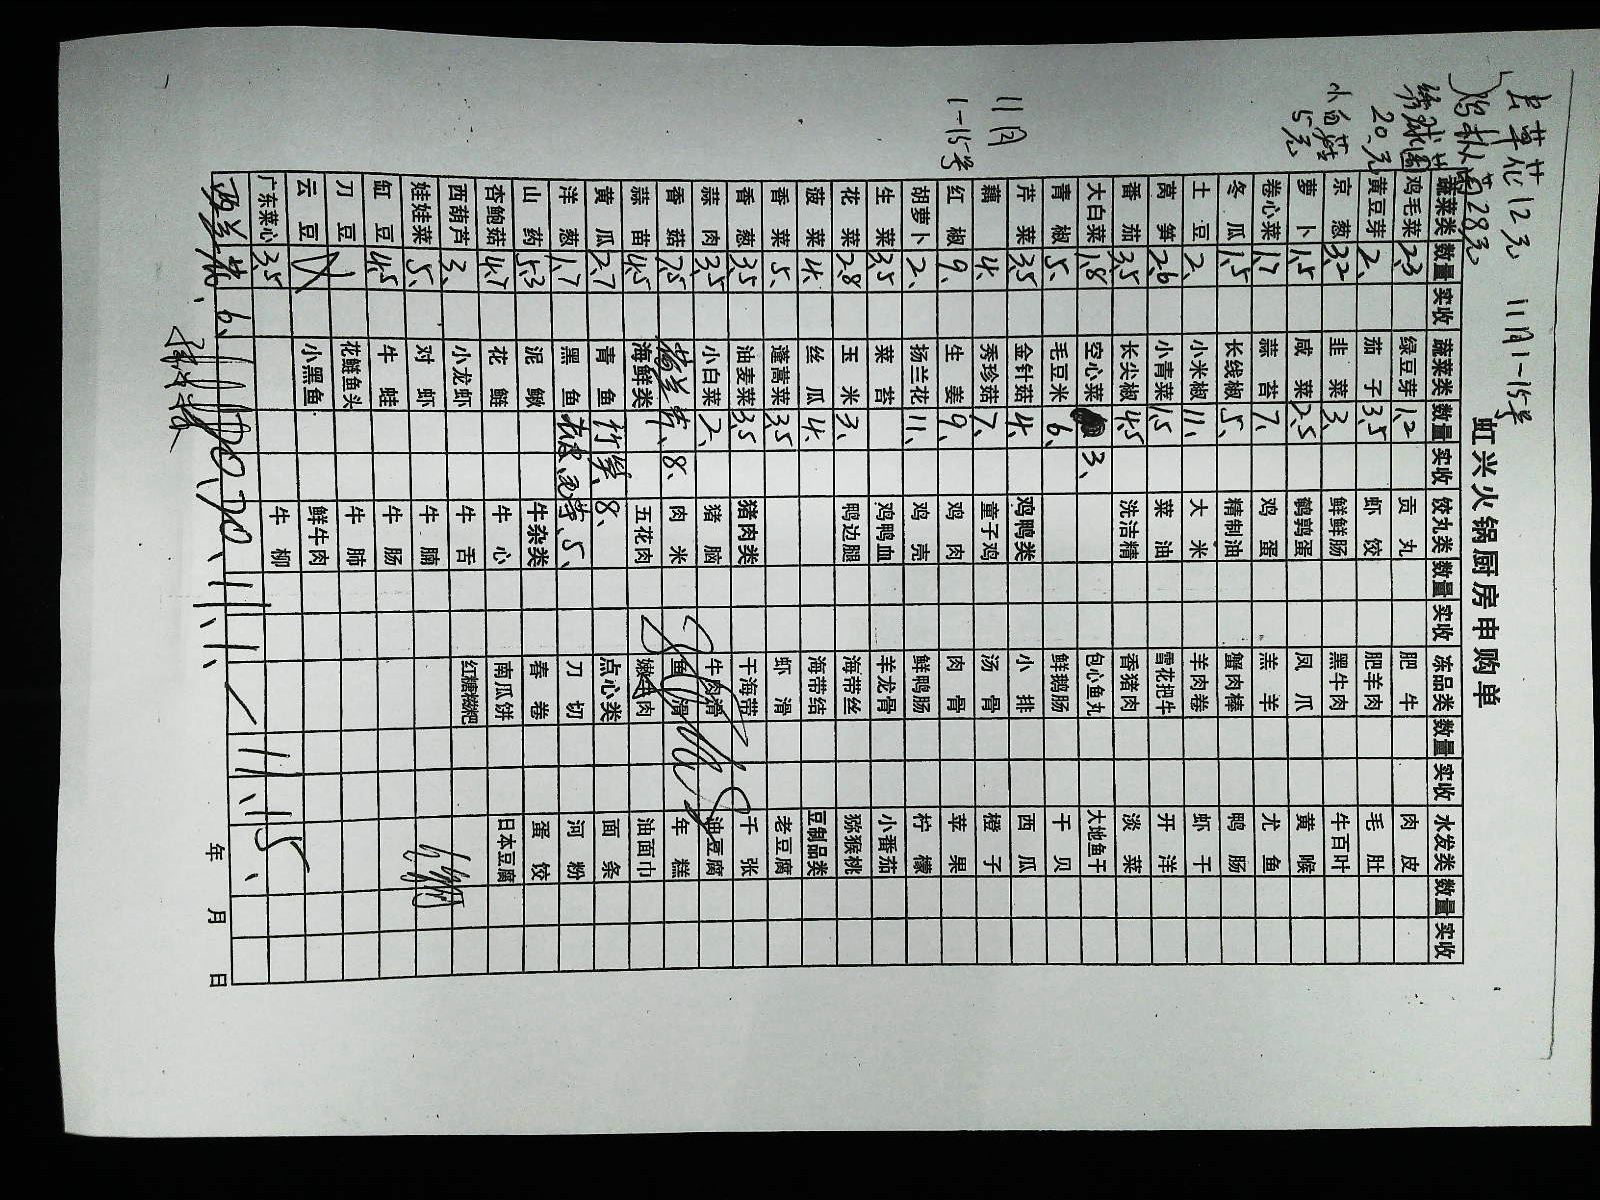 虫草花12元 11月1-15号
28元
20.元
小白菇
5元
11月
1-15号
虹兴火锅厨房申购单
蔬菜类 数量 实收 蔬菜类 数量 实收 饺丸类 数量 实收 冻品类 数量 实收 水发类 数量 实收
鸡毛菜 2.3 绿豆芽 1.2 贡丸 肥牛 肉皮
黄豆芽 2、 茄子 3.5 虾饺 肥羊肉 毛肚
京葱 3.2 韭菜 3、 鲜鲜肠 黑牛肉 牛百叶
萝卜 1.5 咸菜 2.5 鹌鹑蛋 凤爪 黄喉
卷心菜 1.7 蒜苔 7、 鸡蛋 羔羊 尤鱼
冬瓜 1.5 长线椒 5、 精制油 蟹肉棒 鸭肠
土豆 2、 小米椒 11、 大米 羊肉卷 虾干
莴笋 2.6 小青菜 1.5 菜油 雪花把牛 开洋
番茄 3.5 长尖椒 4.5 洗洁精 香猪肉 淡菜
大白菜 1.8 空心菜 3、 包心鱼丸 大地鱼干
青椒 5、 毛豆米 6、 鲜鹅肠 干贝
芹菜 3.5 金针菇 4、 鸡鸭类 小排 西瓜
藕 4、 秀珍菇 7、 童子鸡 汤骨 橙子
红椒 9、 生姜 9、 鸡肉 肉骨 苹果
胡萝卜 2、 扬兰花 11、 鸡壳 鲜鸭肠 柠檬
生菜 3.5 菜苔 鸡鸭血 羊龙骨 小番茄
花菜 2.8 玉米 3、 鸭边腿 海带丝 猕猴桃
菠菜 4、 丝瓜 4、 海带结 豆制品类
香菜 5、 蓬蒿菜 3.5 虾滑 老豆腐
香葱 3.5 油麦菜 3.5 猪肉类 干海带 千张
蒜肉 3.5 小白菜 2、 猪脑 牛肉滑 油豆腐
香菇 7.5 8、 肉米 鱼滑 年糕
蒜苗 4.5 海鲜类 五花肉 嫩牛肉 油面巾
黄瓜 2.7 青鱼 8、 点心类 面条
洋葱 1.7 黑鱼 5、 刀切 河粉
山药 5.3 泥鳅 牛杂类 春卷 蛋饺
杏鲍菇 4.7 花鲢 牛心 南瓜饼 日本豆腐
西葫芦 3、 小龙虾 牛舌 红糖糍粑
娃娃菜 5、 对虾 牛腩
缸豆 4.5 牛蛙 牛肠
刀豆 花鲢鱼头 牛肺
云豆 小黑鱼 鲜牛肉
广东菜心 3.5 牛柳
6、 11.1、— 11.15、
年 月 日